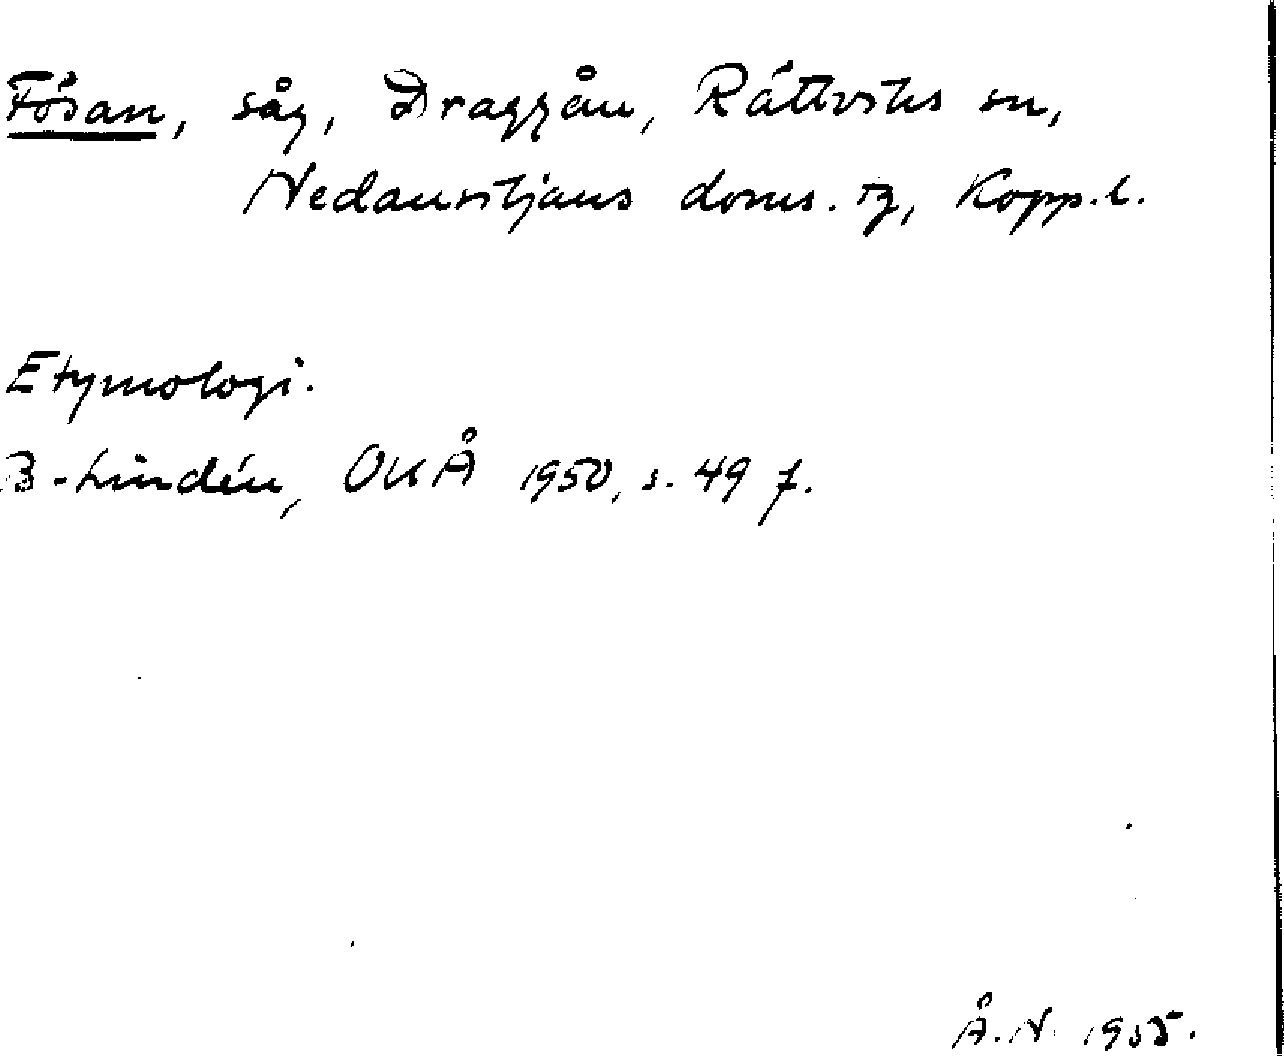 Fösan, såg, Draggån, Rättviks sn,
Nedansiljans doms. tg, Kopp.l.
Etymologi.
B. Lindén, OUÅ 1950, s. 49 f.
Å.N. 1955.